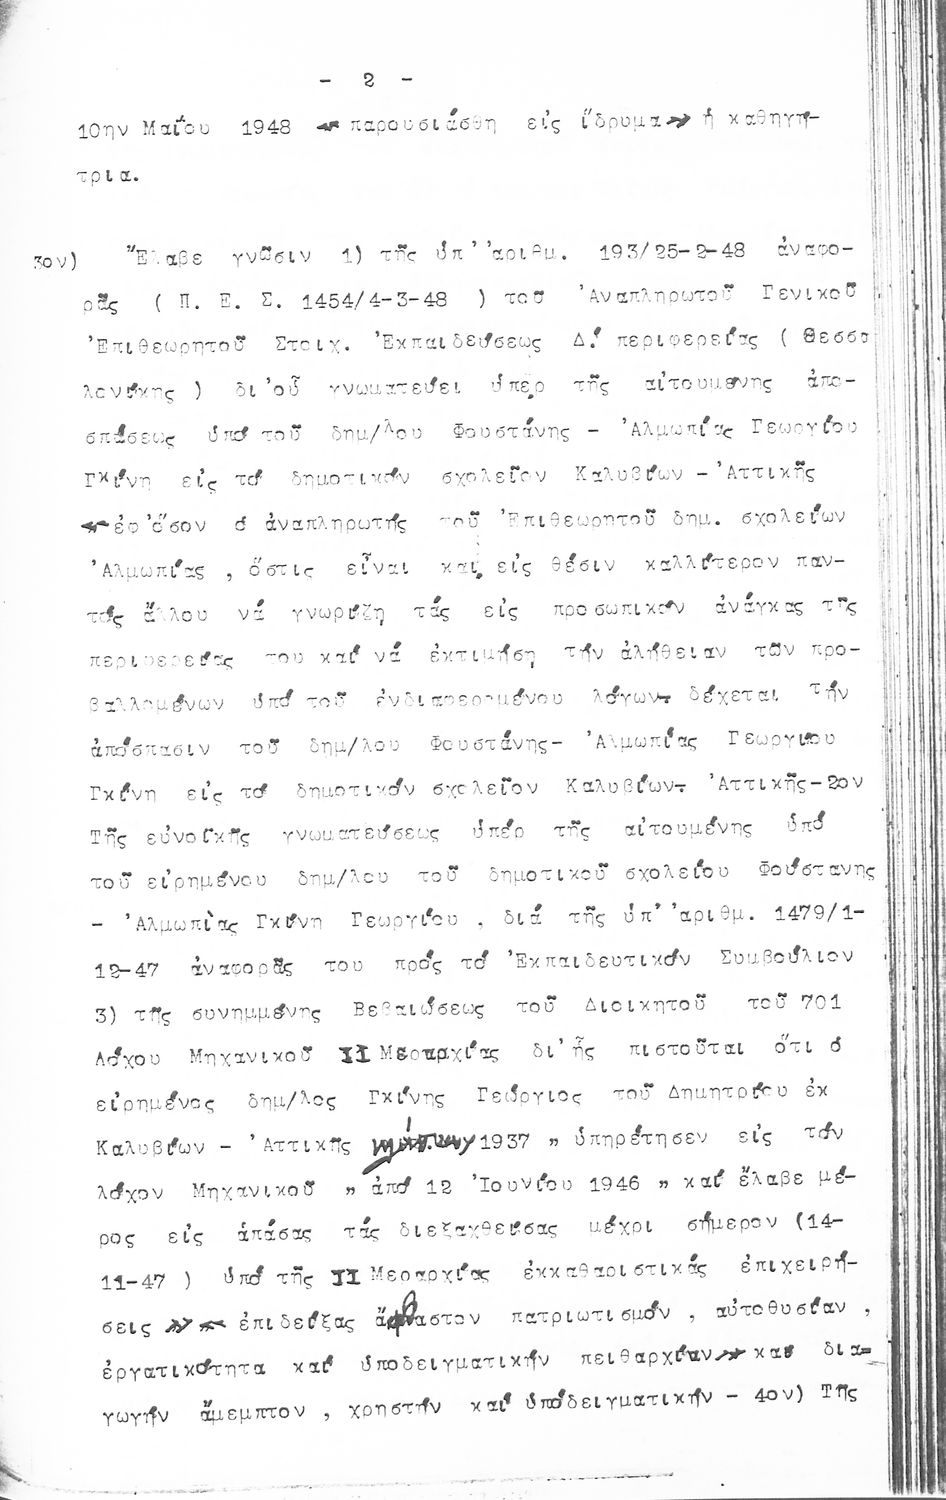 - 2 -
10ην Μαΐου 1948 « παρουσιάσθη εἰς ἵδρυμα » ἡ καθηγή-
τρια.
3ον) Ἔλαβε γνῶσιν 1) τῆς ὑπ' ἀριθμ. 193/25-2-48 ἀναφο-
ρᾶς ( Π. Ε. Σ. 1454/4-3-48 ) τοῦ Ἀναπληρωτοῦ Γενικοῦ
Ἐπιθεωρητοῦ Στοιχ. Ἐκπαιδεύσεως Δ΄. περιφερείας ( Θεσσα
λονίκης ) δι' οὗ γνωματεύει ὑπέρ τῆς αἰτουμένης ἀπο-
σπάσεως ὑπό τοῦ δημ/λου Φουστάνης - Ἀλμωπίας Γεωργίου
Γκίνη εἰς τό δημοτικόν σχολεῖον Καλυβίων - Ἀττικῆς
« ἐφ' ὅσον ὁ ἀναπληρωτής τοῦ Ἐπιθεωρητοῦ δημ. σχολείων
Ἀλμωπίας , ὅστις εἶναι καί εἰς θέσιν καλλίτερον παν-
τός ἄλλου νά γνωρίζη τάς εἰς προσωπικόν ἀνάγκας τῆς
περιφερείας του καί νά ἐκτιμήση τήν ἀλήθειαν τῶν προ-
βαλλομένων ὑπό τοῦ ἐνδιαφερομένου λόγων- δέχεται τήν
ἀπόσπασιν τοῦ δημ/λου Φουστάνης- Ἀλμωπίας Γεωργίου
Γκίνη εἰς τό δημοτικόν σχολεῖον Καλυβίων- Ἀττικῆς-2ον
Τῆς εὐνοϊκῆς γνωματεύσεως ὑπέρ τῆς αἰτουμένης ὑπό
τοῦ εἰρημένου δημ/λου τοῦ δημοτικοῦ σχολείου Φούστανης
- Ἀλμωπίας Γκίνη Γεωργίου , διά τῆς ὑπ' ἀριθμ. 1479/1-
12-47 ἀναφορᾶς του πρός τό Ἐκπαιδευτικόν Συμβούλιον
3) τῆς συνημμένης Βεβαιώσεως τοῦ Διοικητοῦ τοῦ 701
Λόχου Μηχανικοῦ ΙΙ Μεραρχίας δι' ἧς πιστοῦται ὅτι ὁ
εἰρημένος δημ/λος Γκίνης Γεώργιος τοῦ Δημητρίου ἐκ
Καλυβίων - Ἀττικῆς 1937 " ὑπηρέτησεν εἰς τόν
λόχον Μηχανικοῦ " ἀπό 12 Ἰουνίου 1946 " καί ἔλαβε μέ-
ρος εἰς ἁπάσας τάς διεξαχθείσας μέχρι σήμερον (14-
11-47 ) ὑπό τῆς ΙΙ Μεραρχίας ἐκκαθαριστικάς ἐπιχειρή-
σεις » « ἐπιδείξας ἄφθαστον πατριωτισμόν , αὐτοθυσίαν ,
ἐργατικότητα καί ὑποδειγματικήν πειθαρχίαν » καί δια-
γωγήν ἄμεμπτον , χρηστήν καί ὑποδειγματικήν - 4ον) Τῆς